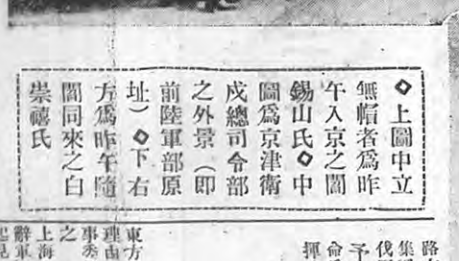 ◆上圖中立
無帽者爲昨
午入京之閻
錫山氏◆中
圖爲京津衛
戍總司令部
之外景（即
前陸軍部原
址）◆下右
方爲昨午隨
閻同來之白
崇禧氏
路
集
伐
予
命
揮
東方
理由
事委
之
上海
辭軍
起見